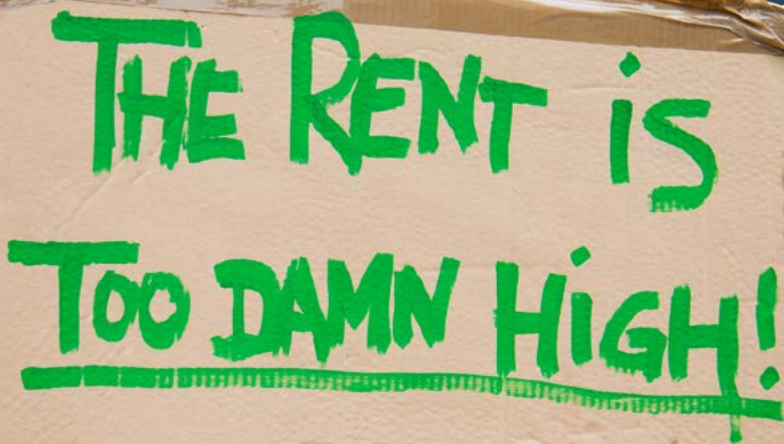 THE RENT iS
TOO DAMN HiGH!